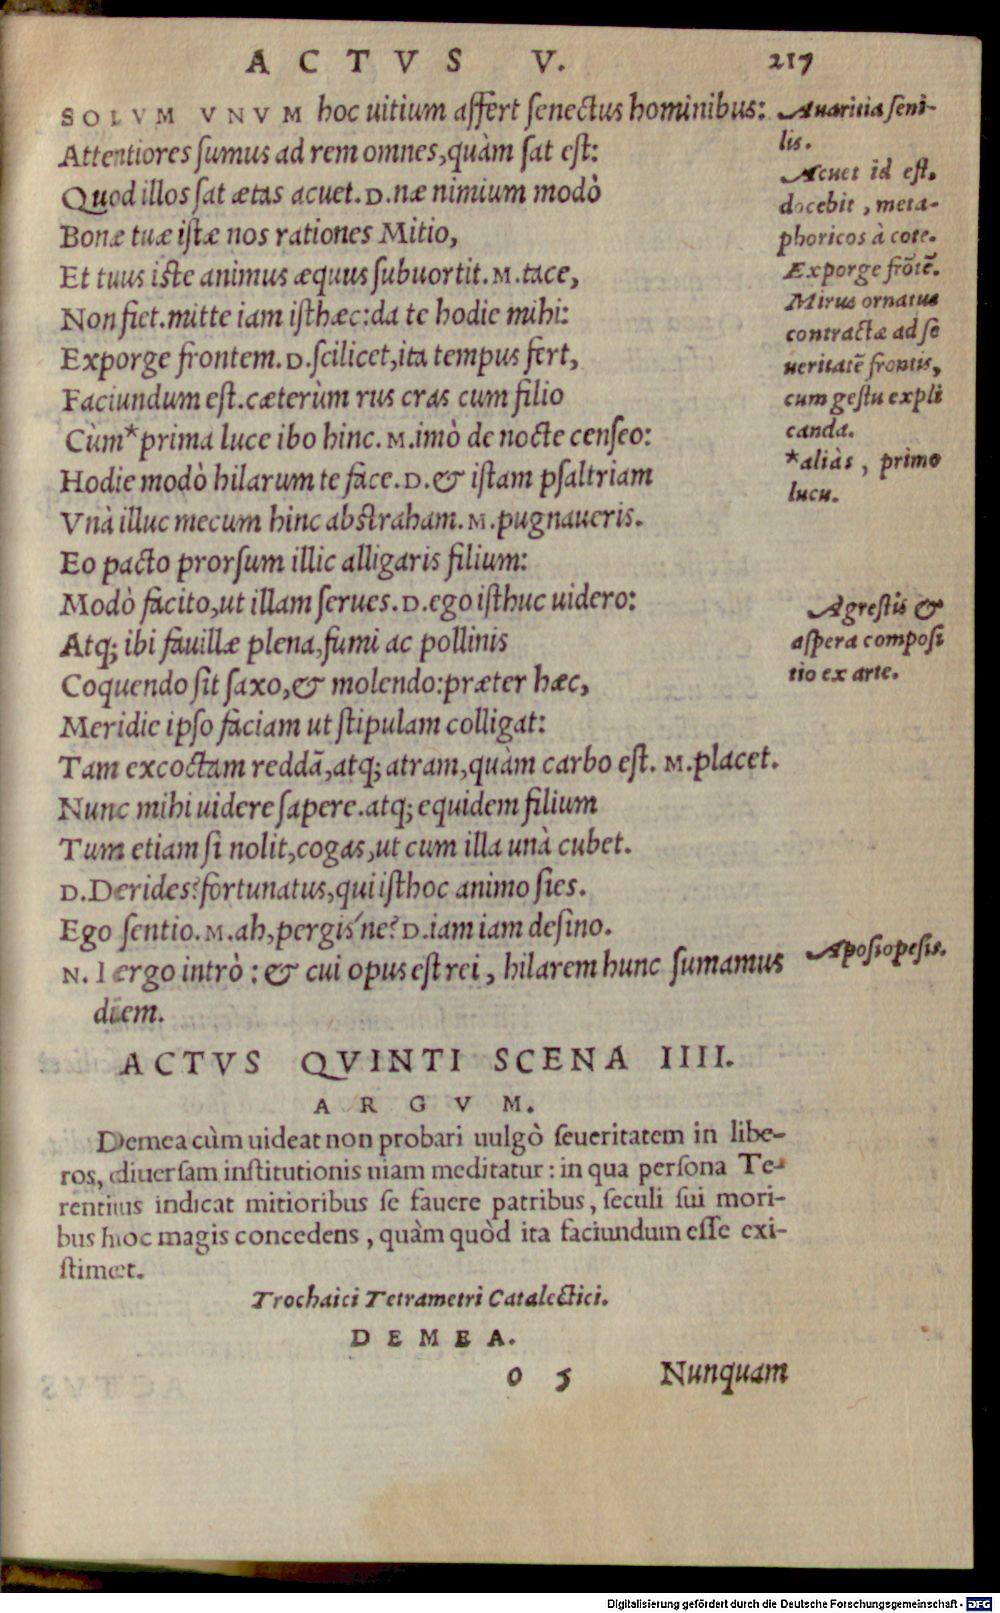 ACTVS V. 217
SOLVM VNVM hoc uitium affert senectus hominibus:
Attentiores sumus ad rem omnes, quàm sat est:
Quod illos sat ætas acuet. D. næ nimium modò
Bonæ tuæ istæ nos rationes Mitio,
Et tuus iste animus æquus subuortit. M. tace,
Non fiet. mitte iam isthæc: da te hodie mihi:
Exporge frontem. D. scilicet, ita tempus fert,
Faciundum est. cæterùm rus cras cum filio
Cùm* prima luce ibo hinc. M. imò de nocte censeo:
Hodie modò hilarum te face. D. & istam psaltriam
Vnà illuc mecum hinc abstraham. M. pugnaueris.
Eo pacto prorsum illic alligaris filium:
Modò facito, ut illam serues. D. ego isthuc uidero:
Atq; ibi fauillæ plena, fumi ac pollinis
Coquendo sit saxo, & molendo: præter hæc,
Meridie ipso faciam ut stipulam colligat:
Tam excoctam reddã, atq; atram, quàm carbo est. M. placet.
Nunc mihi uidere sapere. atq; equidem filium
Tum etiam si nolit, cogas, ut cum illa unà cubet.
D. Derides? fortunatus, qui isthoc animo sies.
Ego sentio. M. ah, pergis'ne? D. iam iam desino.
N. I ergo intrò: & cui opus est rei, hilarem hunc sumamus
diem.
Auaritia seni-
lis.
Acuet id est,
docebit, meta-
phoricos à cote.
Exporge frõtẽ.
Mirus ornatus
contractæ ad se
ueritatẽ frontis,
cum gestu expli
canda.
*aliàs, primo
lucu.
Agrestis &
aspera composi
tio ex arte.
Aposiopesis.
ACTVS QVINTI SCENA IIII.
ARGVM.
Demea cùm uideat non probari uulgò seueritatem in libe-
ros, diuersam institutionis uiam meditatur: in qua persona Te-
rentius indicat mitioribus se fauere patribus, seculi sui mori-
bus hoc magis concedens, quàm quòd ita faciundum esse exi-
stimet.
Trochaici Tetrametri Catalectici.
DEMEA.
o 5 Nunquam
Digitalisierung gefördert durch die Deutsche Forschungsgemeinschaft - DFG